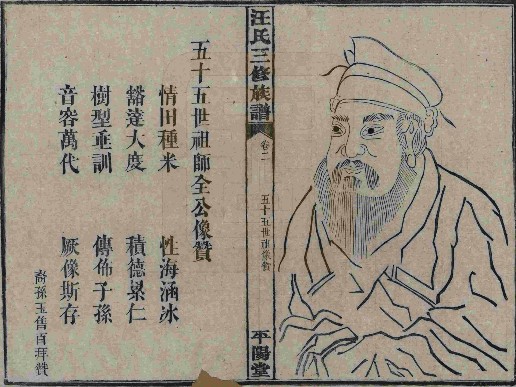 汪氏三修族譜
卷二
五十五世祖像贊
平陽堂
五十五世祖師全公像贊
情田種米 性海涵冰
豁達大度 積德累仁
樹型垂訓 傳佈子孫
音容萬代 厥像斯存
裔孫玉百拜贊